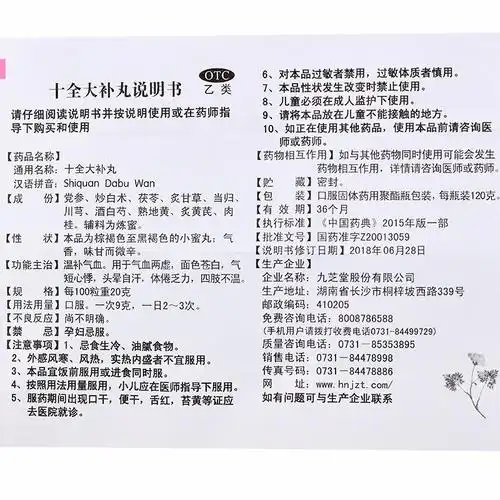 OTC
乙类
十全大补丸说明书
请仔细阅读说明书并按说明使用或在药师指
导下购买和使用
【药品名称】
通用名称：十全大补丸
汉语拼音：Shiquan Dabu Wan
【成　　份】党参、炒白术、茯苓、炙甘草、当归、
川芎、酒白芍、熟地黄、炙黄芪、肉
桂。辅料为炼蜜。
【性　　状】本品为棕褐色至黑褐色的小蜜丸；气
香，味甘而微辛。
【功能主治】温补气血。用于气血两虚，面色苍白，气
短心悸，头晕自汗，体倦乏力，四肢不温。
【规　　格】每100粒重20克
【用法用量】口服。一次9克，一日2～3次。
【不良反应】尚不明确。
【禁　　忌】孕妇忌服。
【注意事项】1、忌食生冷、油腻食物。
2、外感风寒、风热，实热内盛者不宜服用。
3、本品宜饭前服用或进食同时服。
4、按照用法用量服用，小儿应在医师指导下服用。
5、服药期间出现口干，便干，舌红，苔黄等证应
去医院就诊。
6、对本品过敏者禁用，过敏体质者慎用。
7、本品性状发生改变时禁止使用。
8、儿童必须在成人监护下使用。
9、请将本品放在儿童不能接触的地方。
10、如正在使用其他药品，使用本品前请咨询医
师或药师。
【药物相互作用】如与其他药物同时使用可能会发生
药物相互作用，详情请咨询医师或药师。
【贮　　藏】密封。
【包　　装】口服固体药用聚酯瓶包装，每瓶装120克。
【有 效 期】36个月
【执行标准】《中国药典》2015年版一部
【批准文号】国药准字Z20013059
【说明书修订日期】2018年06月28日
【生产企业】
企业名称：九芝堂股份有限公司
生产地址：湖南省长沙市桐梓坡西路339号
邮政编码：410205
免费咨询电话：8008786588
(手机用户请拨打收费电话0731-84499729)
质量咨询电话：0731-85353895
销售电话：0731-84478998
传真号码：0731-84478886
网　　址：www.hnjzt.com/
如有问题可与生产企业联系